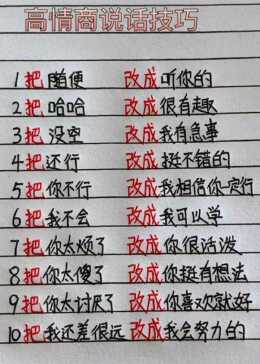 高情商说话技巧
1把随便 改成听你的
2把哈哈 改成很有趣
3把没空 改成我有急事
4把还行 改成挺不错的
5把你不行 改成我相信你一定行
6把我不会 改成我可以学
7把你太烦了 改成你很活泼
8把你太傻了 改成你挺有想法
9把你太讨厌了 改成你喜欢就好
10把我还差很远 改成我会努力的